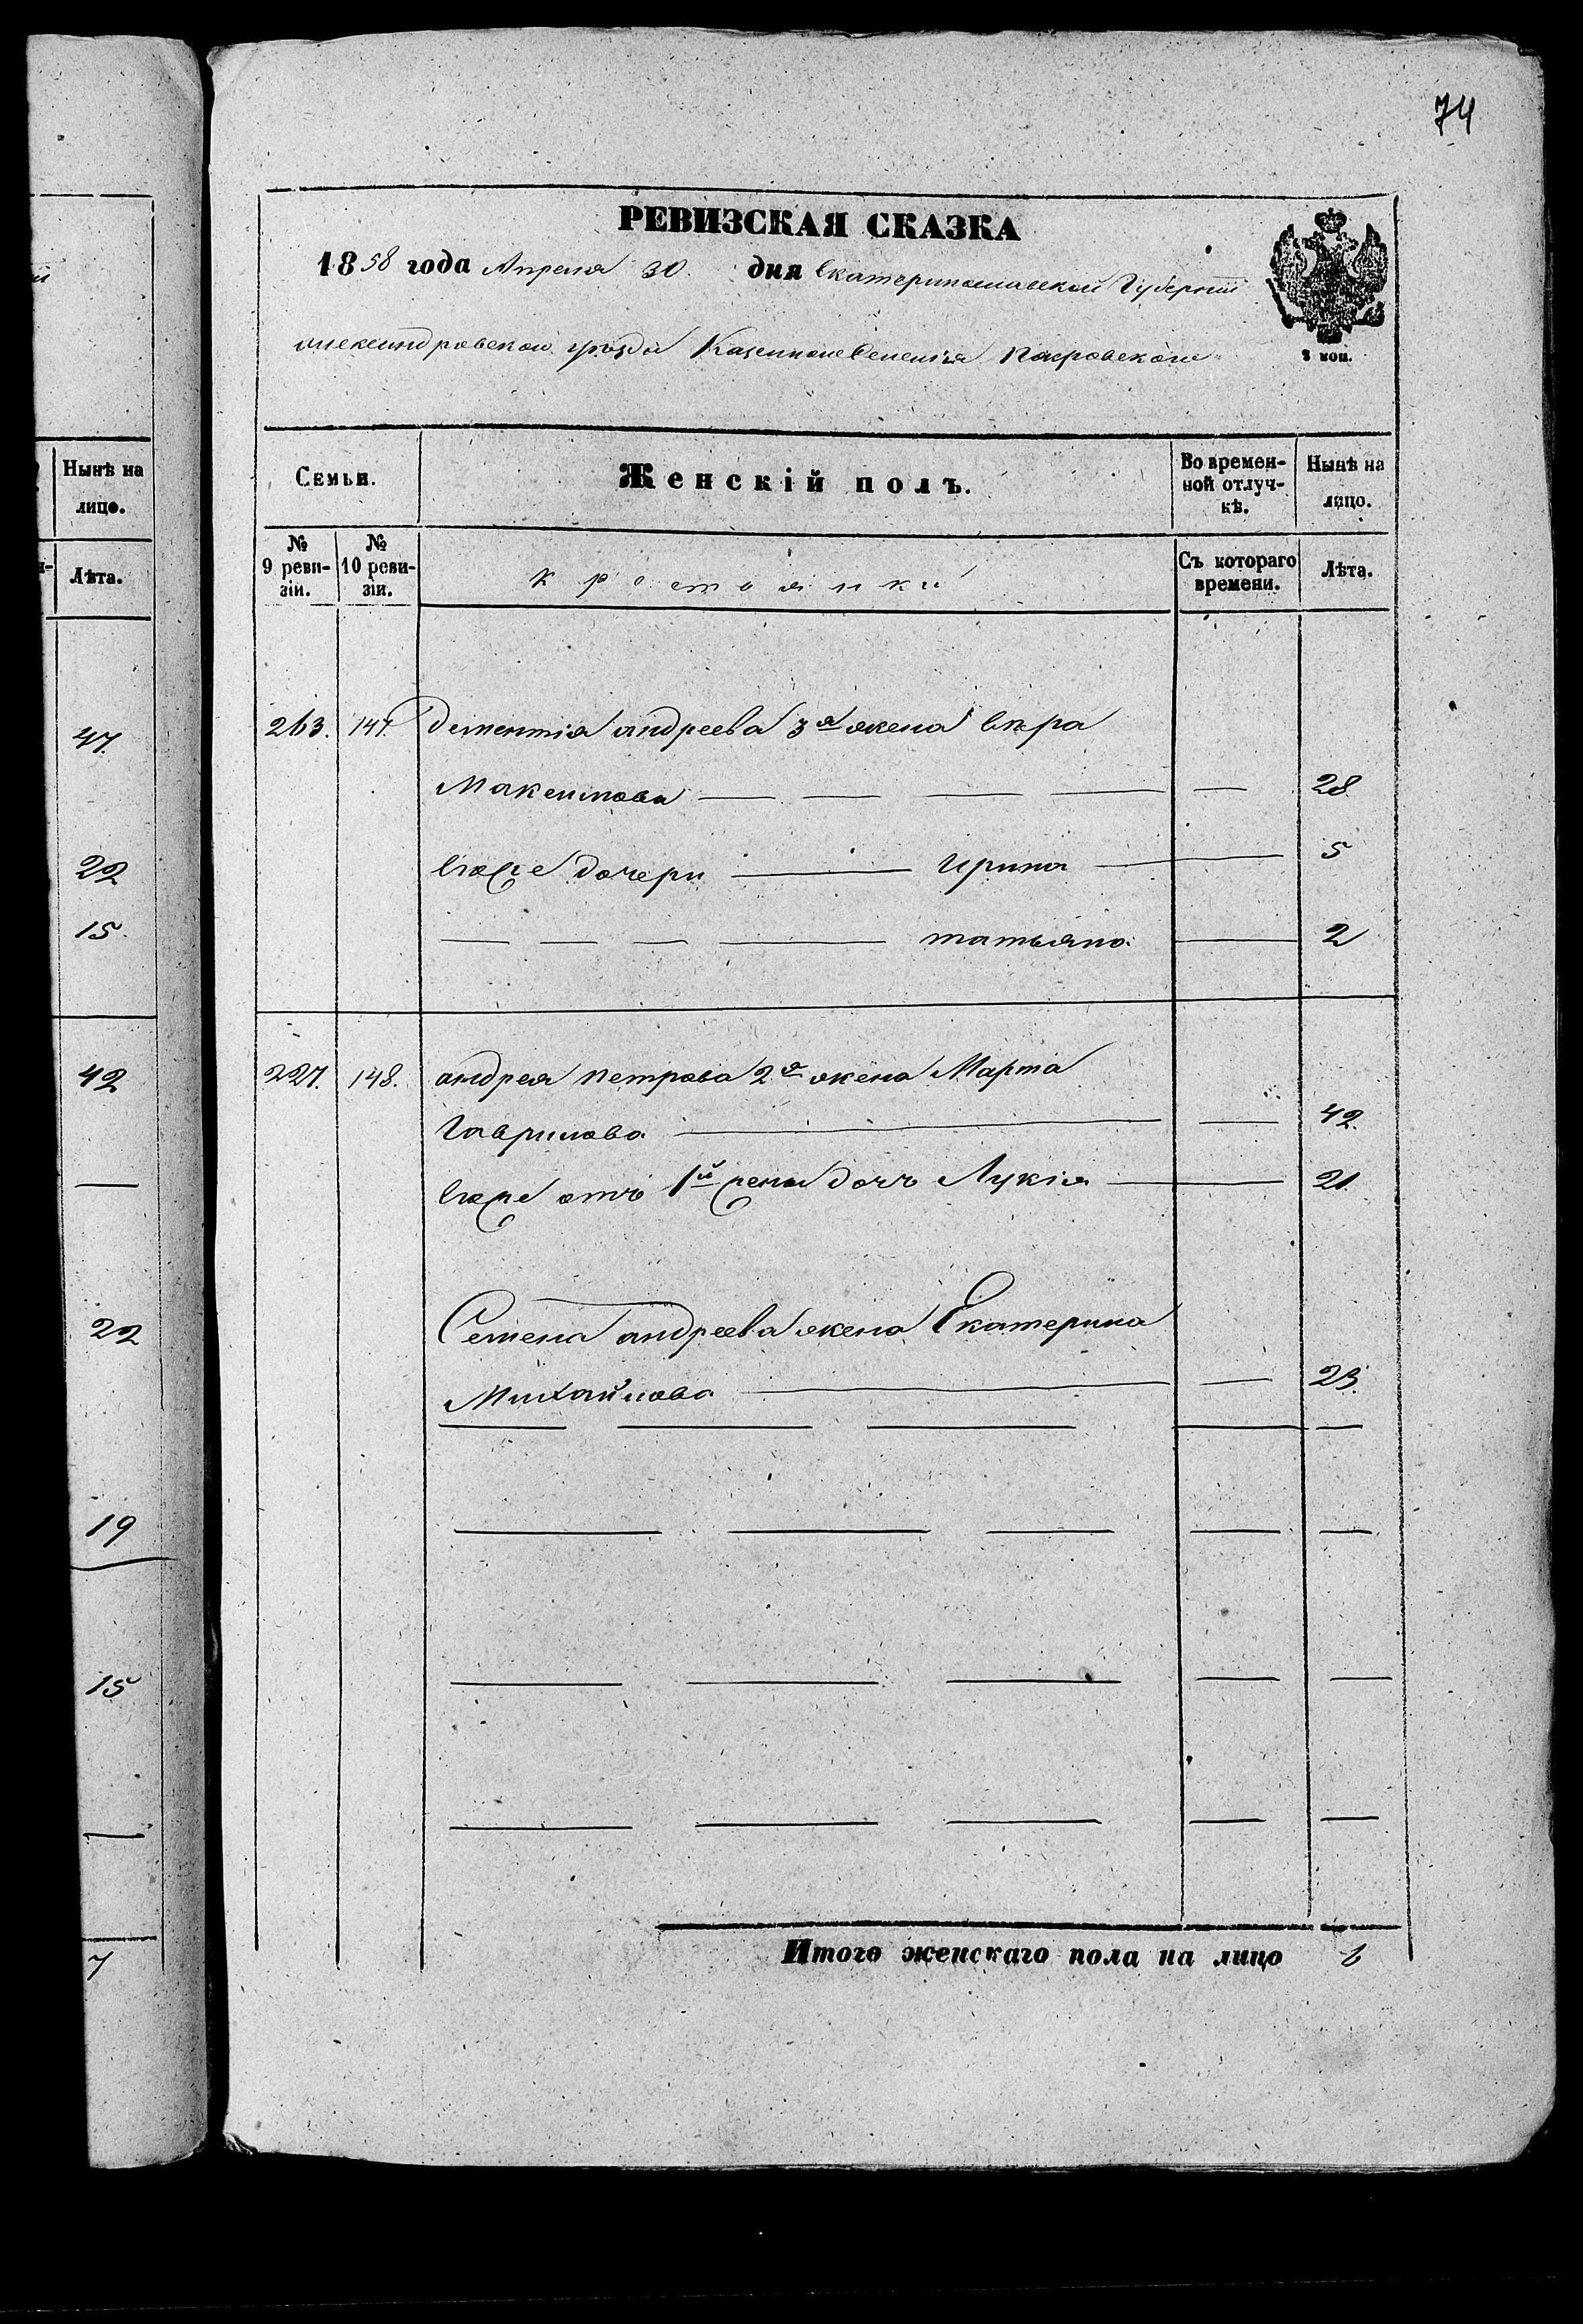 74
РЕВИЗСКАЯ СКАЗКА
1858 года Апреля 30. дня Екатеринославской Губернiи
александровского уѣзда Казенного Селенiя Покровского
3 коп.
Семьи. Женскiй полъ. Во времен- Нынѣ на
ной отлуч- лицо.
кѣ.
№ № Съ котораго Лѣта.
9 реви- 10 реви- времени.
зiи. зiи.
крестьянки
263. 147. Дементiя андреева 3я жена Вѣра
Максимова 28
Его же дочери Ирина 5
татьяна. 2
227. 148. андрея петрова 2я жена Марта
Гаврилова 42.
Его же отъ 1й жены дочь Лукiя 21
Семена андреева жена Екатерина
Михайлова 23.
Итого женскаго пола на лицо 6
Нынѣ на
лицо.
Лѣта.
47.
22
15.
42
22
19
15
7